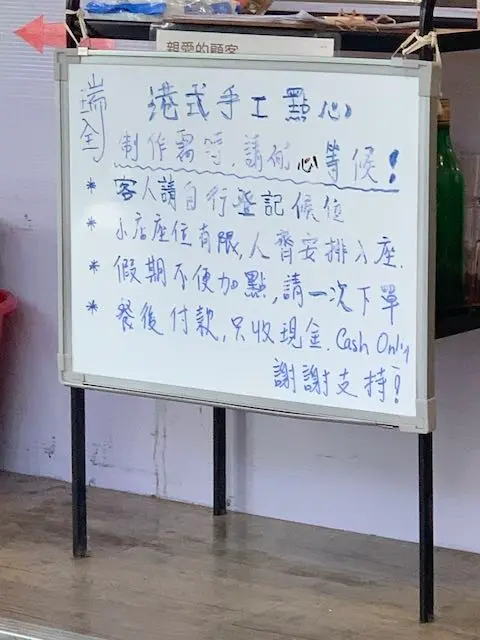 親愛的顧客
瑞全
港式手工點心
制作需時,請耐心等候!
* 客人請自行登記候位
* 小店座位有限,人齊安排入座.
* 假期不便加點,請一次下單
* 餐後付款,只收現金. Cash Only
謝謝支持!